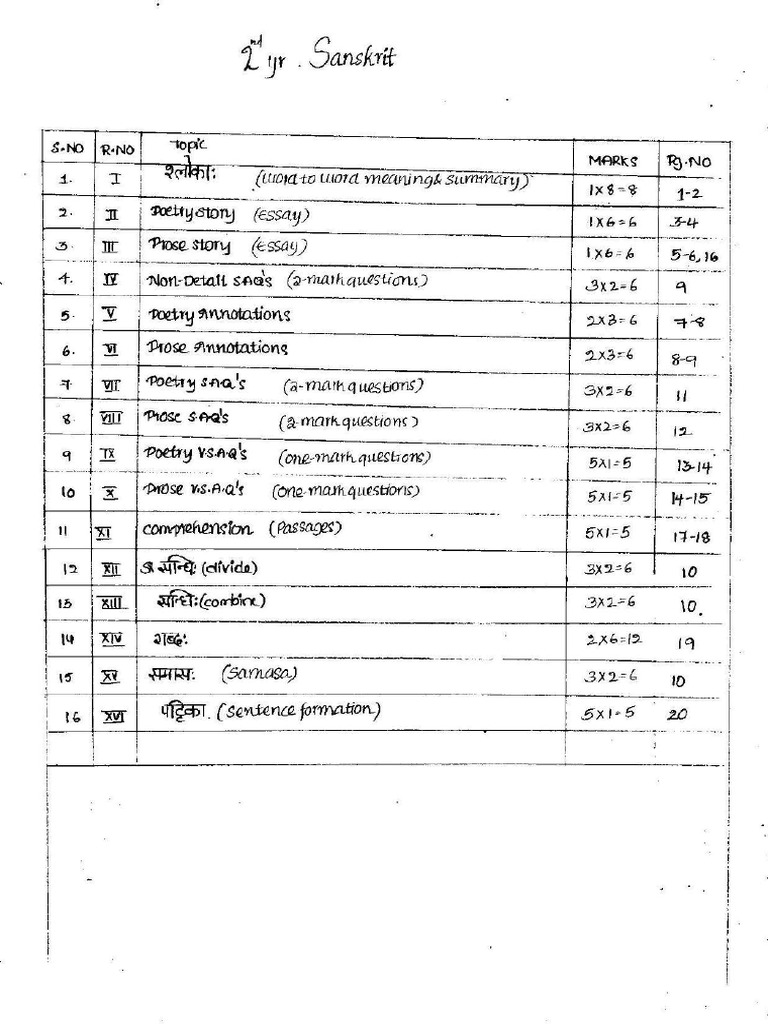 2nd yr. Sanskrit
S.NO R.NO Topic MARKS Pg.NO
1. I श्लोकाः (word to word meaning & summary) 1x8=8 1-2
2. II Poetry story (Essay) 1x6=6 3-4
3. III Prose story (Essay) 1x6=6 5-6, 16
4. IV Non-Detail SAQ's (2-mark questions) 3x2=6 9
5. V Poetry Annotations 2x3=6 7-8
6. VI Prose Annotations 2x3=6 8-9
7. VII Poetry S.A.Q's (2-mark questions) 3x2=6 11
8. VIII Prose S.A.Q's (2-mark questions) 3x2=6 12
9 IX Poetry V.S.A.Q's (one-mark questions) 5x1=5 13-14
10 X Prose V.S.A.Q's (one-mark questions) 5x1=5 14-15
11 XI Comprehension (Passages) 5x1=5 17-18
12 XII सन्धिः (divide) 3x2=6 10
13 XIII सन्धिः (combine) 3x2=6 10.
14 XIV शब्दः 2x6=12 19
15 XV समासः (Samasa) 3x2=6 10
16 XVI पट्टिका. (Sentence formation) 5x1=5 20